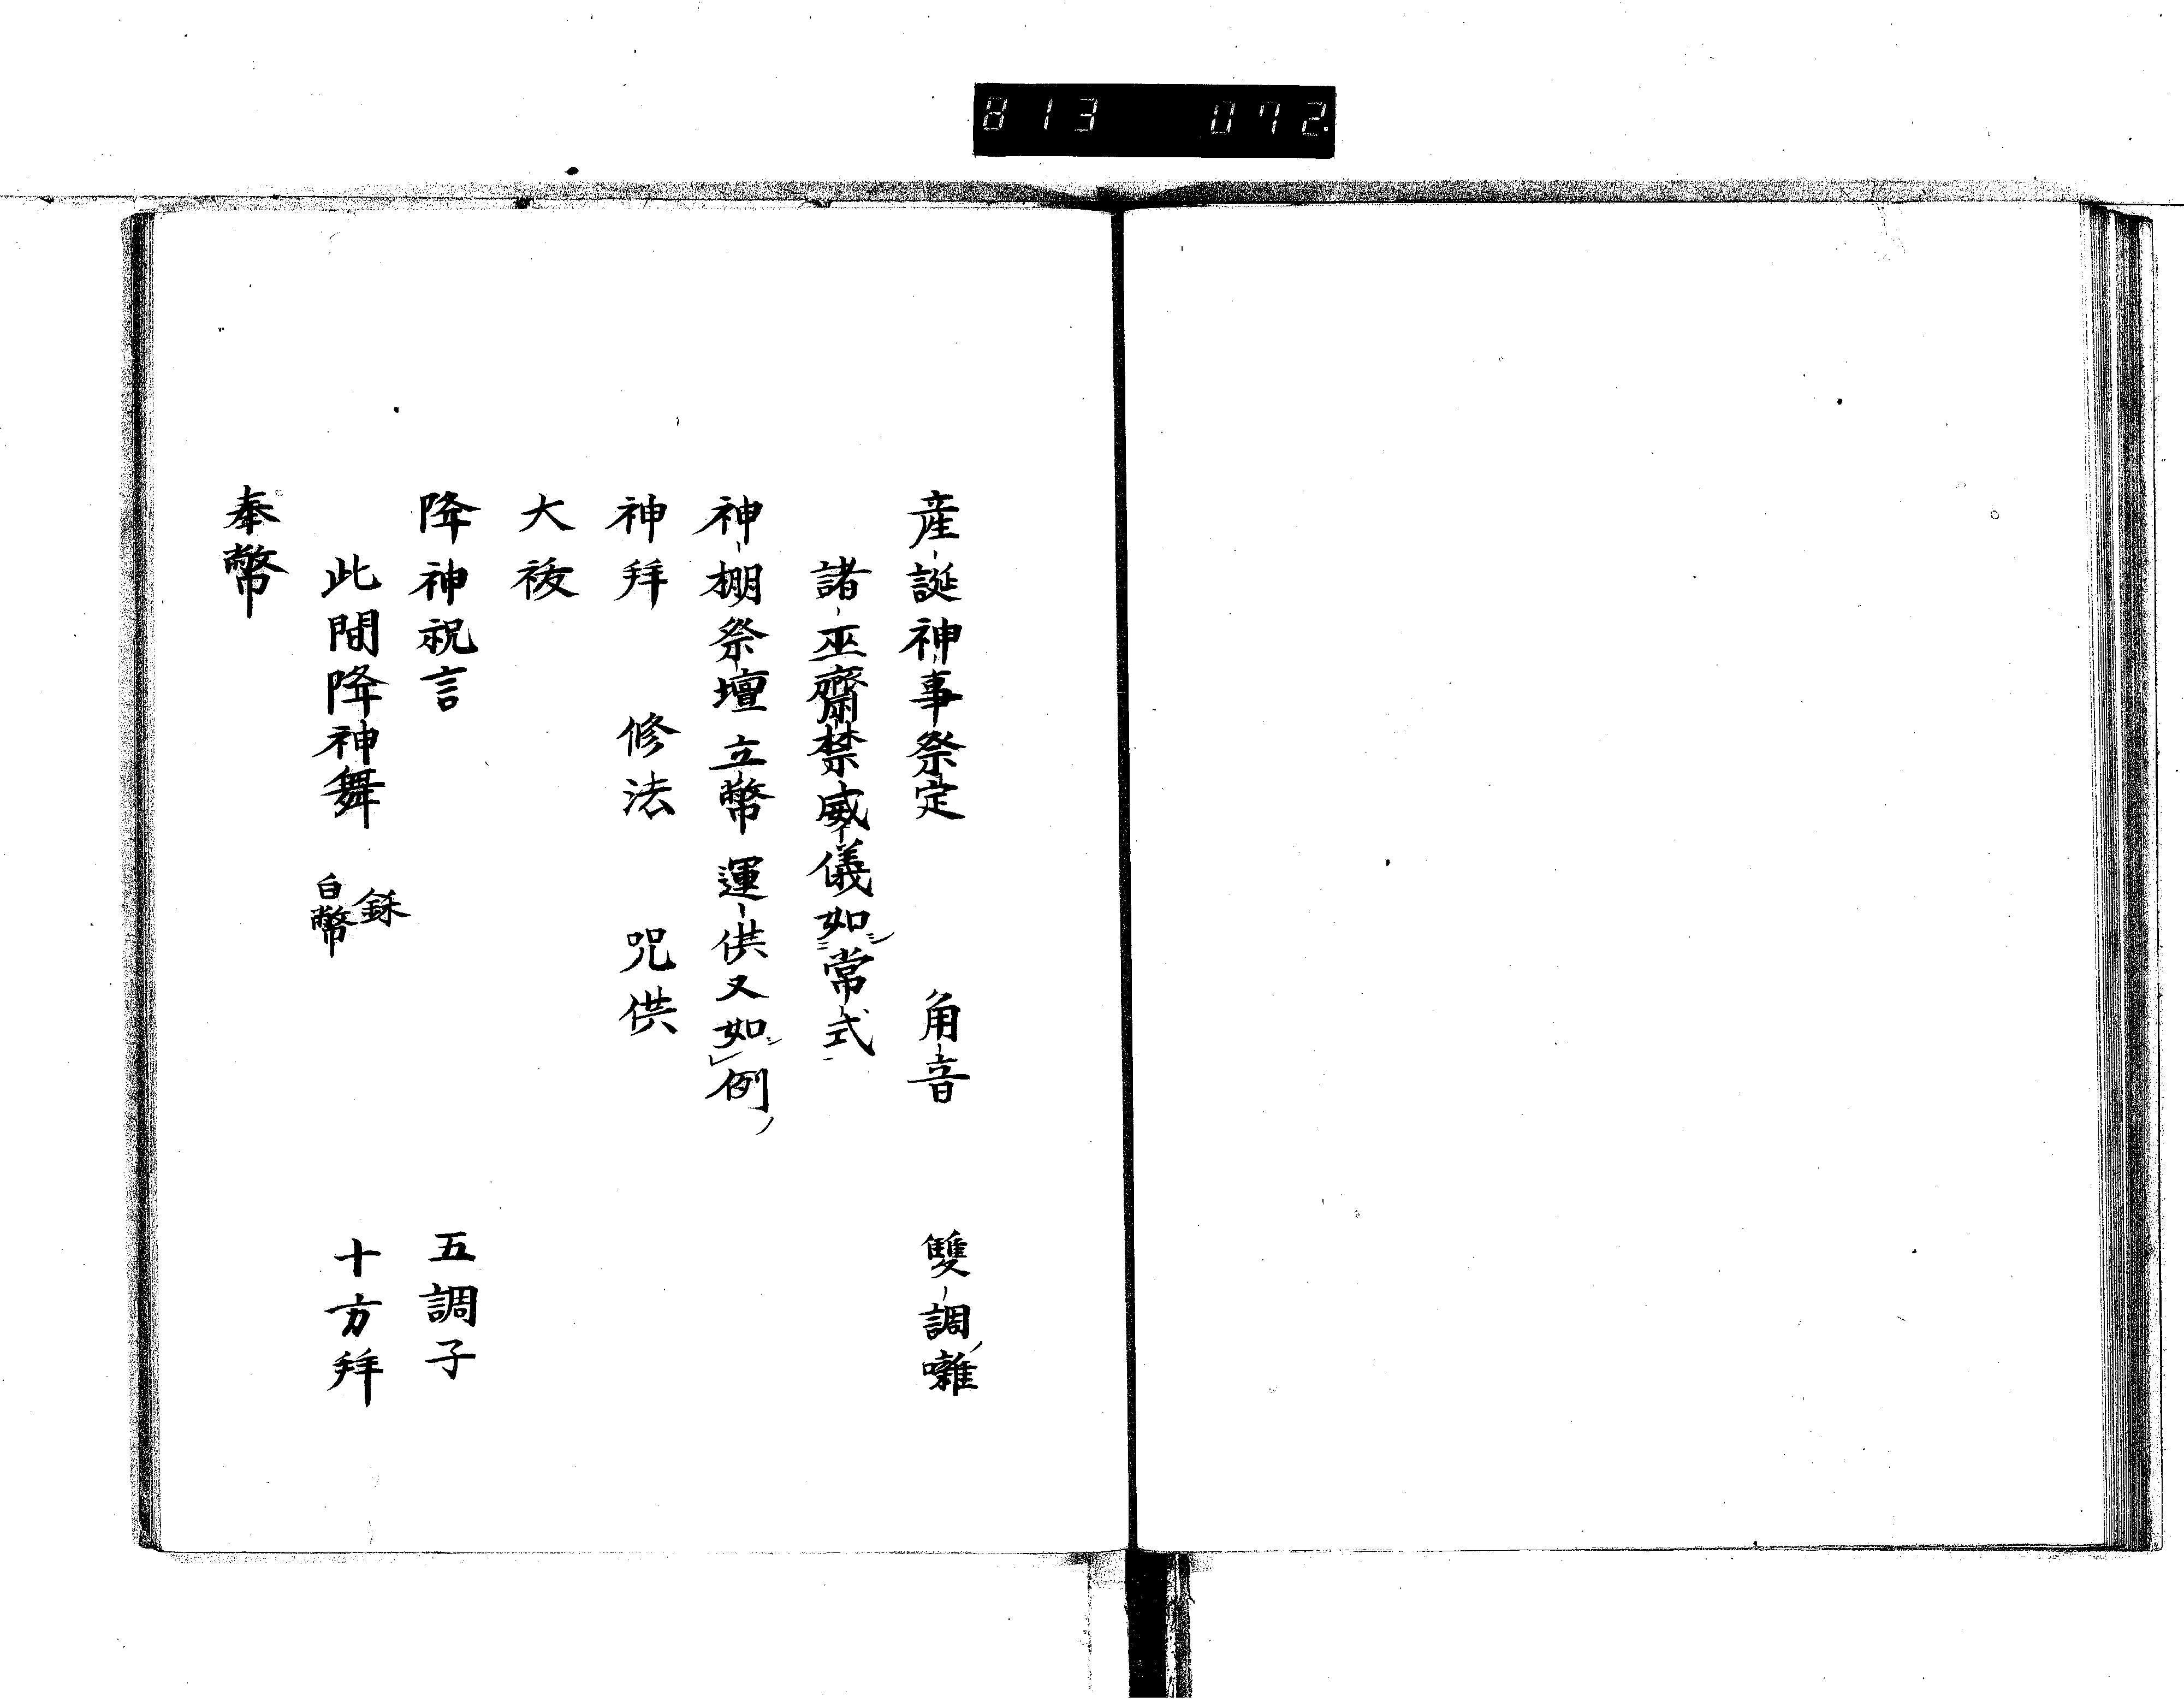 813 072
産誕神事祭定 角音 雙調囃
諸巫齋禁威儀如常式
神棚祭壇立幣運供又如例
神拜 修法 咒供
大祓
降神祝言 五調子
此間降神舞 鉢 白幣 十方拜
奉幣